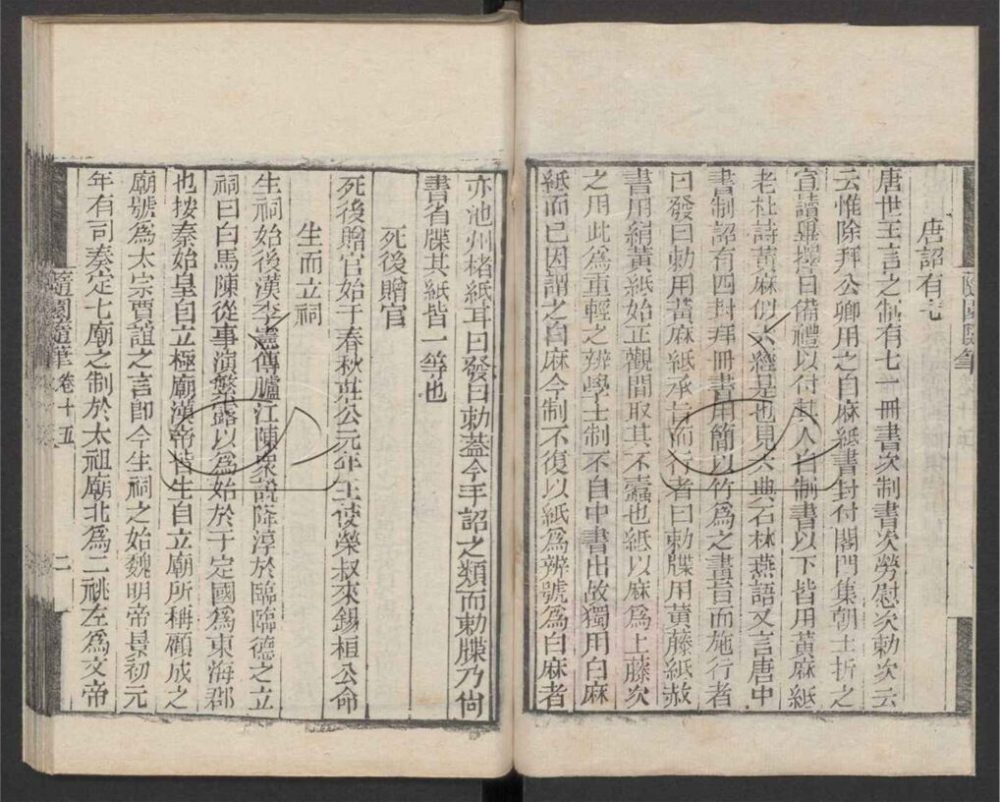 唐詔有七
唐世王言之制有七一冊書次制書次勞慰次勅次云
云惟除拜公卿用之白麻紙書封付閣門集朝士折之
宣讀畢擇日備禮以付其人自制書以下皆用黃麻紙
老杜詩黃麻似六經是也見六典石林燕語又言唐中
書制詔有四封拜冊書用簡以竹爲之書旨而施行者
曰發曰勅用黃麻紙承旨而行者曰勅牒用黃藤紙赦
書用絹黃紙始正觀間取其不蠹也紙以麻爲上藤次
之用此爲重輕之辨學士制不自中書出故獨用白麻
紙而已因謂之白麻今制不復以紙爲辨號爲白麻者
亦池州楮紙耳曰發曰勅蓋今手詔之類而勅牒乃尙
書省牒其紙皆一等也
死後贈官
死後贈官始于春秋莊公元年王使榮叔來錫桓公命
生而立祠
生祠始後漢李憲傳臚江陳衆說降淳於臨臨德之立
祠曰白馬陳從事演繁露以爲始於于定國爲東海郡
也按秦始皇自立極廟漢帝皆生自立廟所稱顧成之
廟號爲太宗賈誼之言卽今生祠之始魏明帝景初元
年有司奏定七廟之制於太祖廟北爲二祧左爲文帝
隨園隨筆 卷十五
二